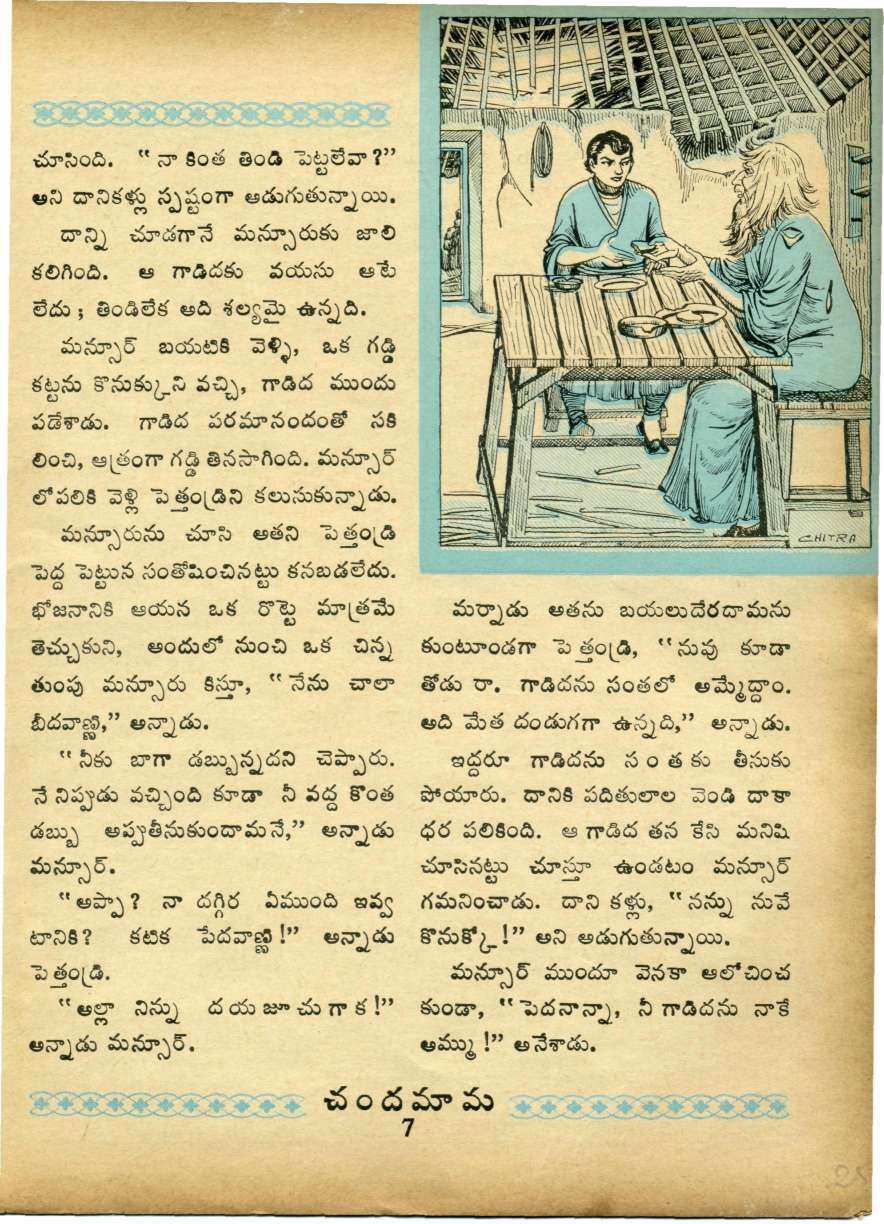 చూసింది. “నా కింత తిండి పెట్టలేవా?”
అని దానికళ్లు స్పష్టంగా అడుగుతున్నాయి.
దాన్ని చూడగానే మన్సూరుకు జాలి
కలిగింది. ఆ గాడిదకు వయసు అటే
లేదు; తిండిలేక అది శల్యమై ఉన్నది.
మన్సూర్ బయటికి వెళ్ళి, ఒక గడ్డి
కట్టను కొనుక్కుని వచ్చి, గాడిద ముందు
పడేశాడు. గాడిద పరమానందంతో సకి
లించి, ఆత్రంగా గడ్డి తినసాగింది. మన్సూర్
లోపలికి వెళ్లి పెత్తండ్రిని కలుసుకున్నాడు.
మన్సూరును చూసి అతని పెత్తండ్రి
పెద్ద పెట్టున సంతోషించినట్టు కనబడలేదు.
భోజనానికి ఆయన ఒక రొట్టె మాత్రమే
తెచ్చుకుని, అందులో నుంచి ఒక చిన్న
తుంపు మన్సూరు కిస్తూ, “నేను చాలా
బీదవాణ్ణి,” అన్నాడు.
“నీకు బాగా డబ్బున్నదని చెప్పారు.
నే నిప్పుడు వచ్చింది కూడా నీ వద్ద కొంత
డబ్బు అప్పుతీసుకుందామనే,” అన్నాడు
మన్సూర్.
“అప్పా? నా దగ్గిర ఏముంది ఇవ్వ
టానికి? కటిక పేదవాణ్ణి!” అన్నాడు
పెత్తండ్రి.
“అల్లా నిన్ను దయజూచుగాక!”
అన్నాడు మన్సూర్.
CHITRA
మర్నాడు అతను బయలుదేరదామను
కుంటూండగా పెత్తండ్రి, “నువు కూడా
తోడు రా. గాడిదను సంతలో అమ్మేద్దాం.
అది మేత దండుగగా ఉన్నది,” అన్నాడు.
ఇద్దరూ గాడిదను సంతకు తీసుకు
పోయారు. దానికి పదితులాల వెండి దాకా
ధర పలికింది. ఆ గాడిద తన కేసి మనిషి
చూసినట్టు చూస్తూ ఉండటం మన్సూర్
గమనించాడు. దాని కళ్లు, “నన్ను నువే
కొనుక్కో!” అని అడుగుతున్నాయి.
మన్సూర్ ముందూ వెనకా ఆలోచించ
కుండా, “పెదనాన్నా, నీ గాడిదను నాకే
అమ్ము!” అనేశాడు.
చందమామ
7
25